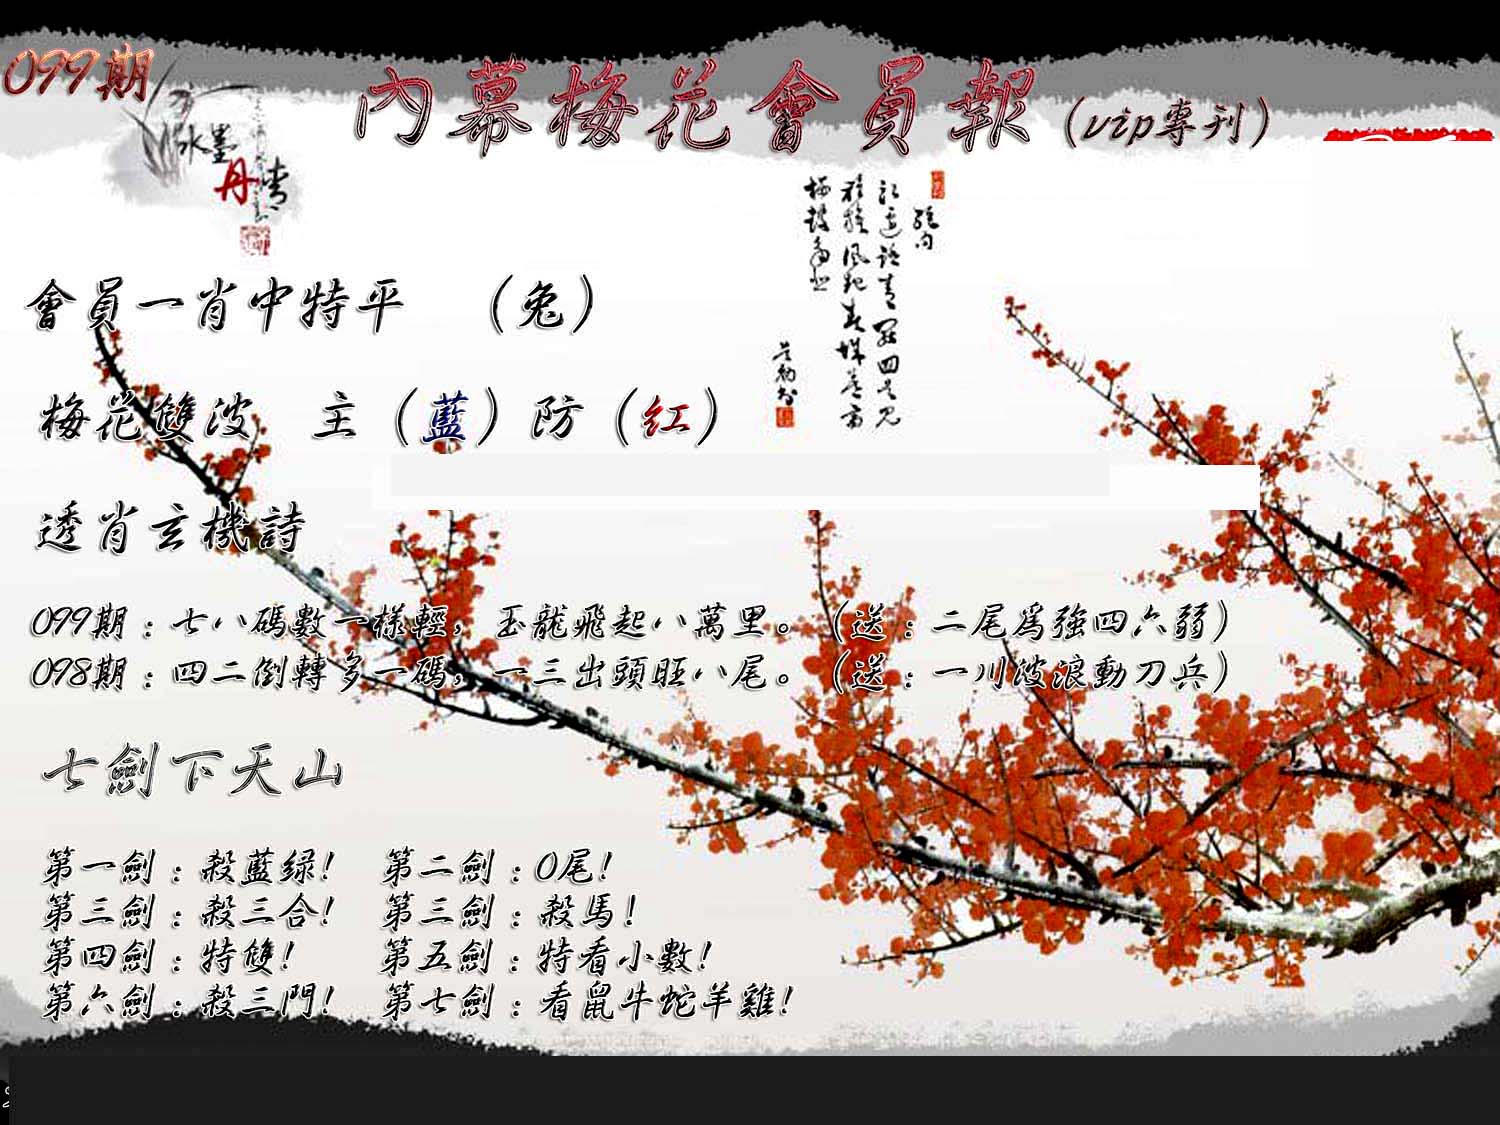 099期
內幕梅花會員報（vip專刊）
水墨
丹青
會員一肖中特平　（兔）
梅花雙波　主（藍）防（紅）
透肖玄機詩
099期：七八碼數一樣輕，玉龍飛起八萬里。（送：二尾為強四六弱）
098期：四二倒轉多一碼，一三出頭旺八尾。（送：一川波浪動刀兵）
七劍下天山
第一劍：殺藍绿!　第二劍：0尾!
第三劍：殺三合!　第三劍：殺馬!
第四劍：特雙!　第五劍：特看小數!
第六劍：殺三門!　第七劍：看鼠牛蛇羊雞!